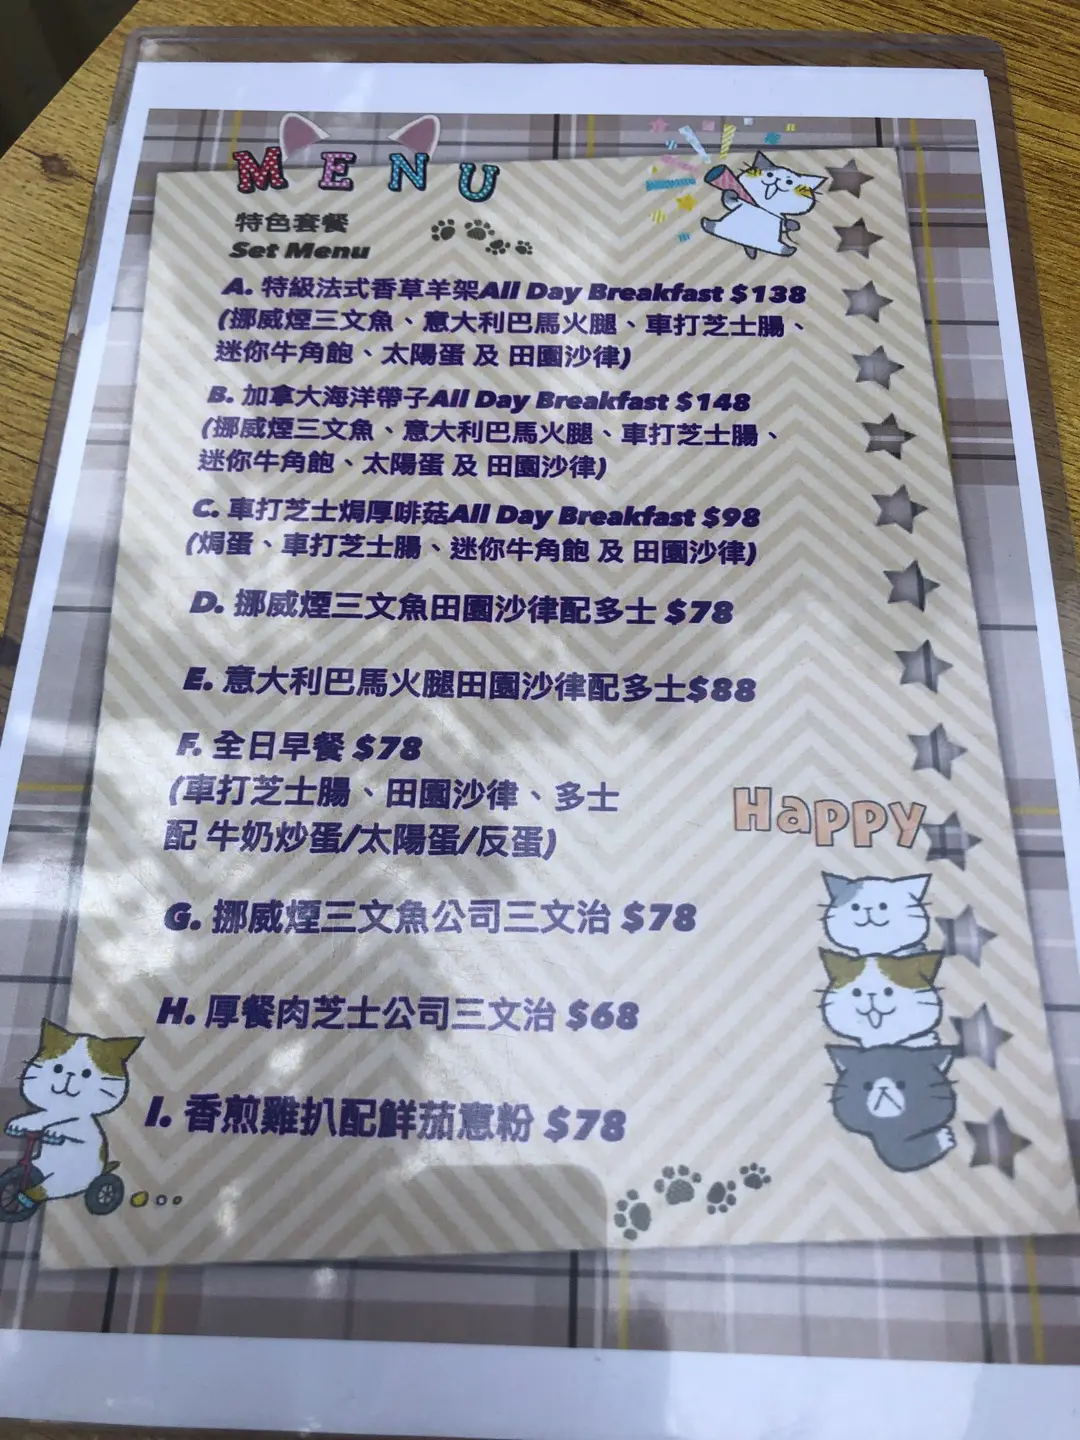 MENU
特色套餐
Set Menu
A. 特級法式香草羊架All Day Breakfast $138
(挪威煙三文魚、意大利巴馬火腿、車打芝士腸、
迷你牛角飽、太陽蛋 及 田園沙律)
B. 加拿大海洋帶子All Day Breakfast $148
(挪威煙三文魚、意大利巴馬火腿、車打芝士腸、
迷你牛角飽、太陽蛋 及 田園沙律)
C. 車打芝士焗厚啡菇All Day Breakfast $98
(焗蛋、車打芝士腸、迷你牛角飽 及 田園沙律)
D. 挪威煙三文魚田園沙律配多士 $78
E. 意大利巴馬火腿田園沙律配多士$88
F. 全日早餐 $78
(車打芝士腸、田園沙律、多士
配 牛奶炒蛋/太陽蛋/反蛋)
Happy
G. 挪威煙三文魚公司三文治 $78
H. 厚餐肉芝士公司三文治 $68
I. 香煎雞扒配鮮茄意粉 $78